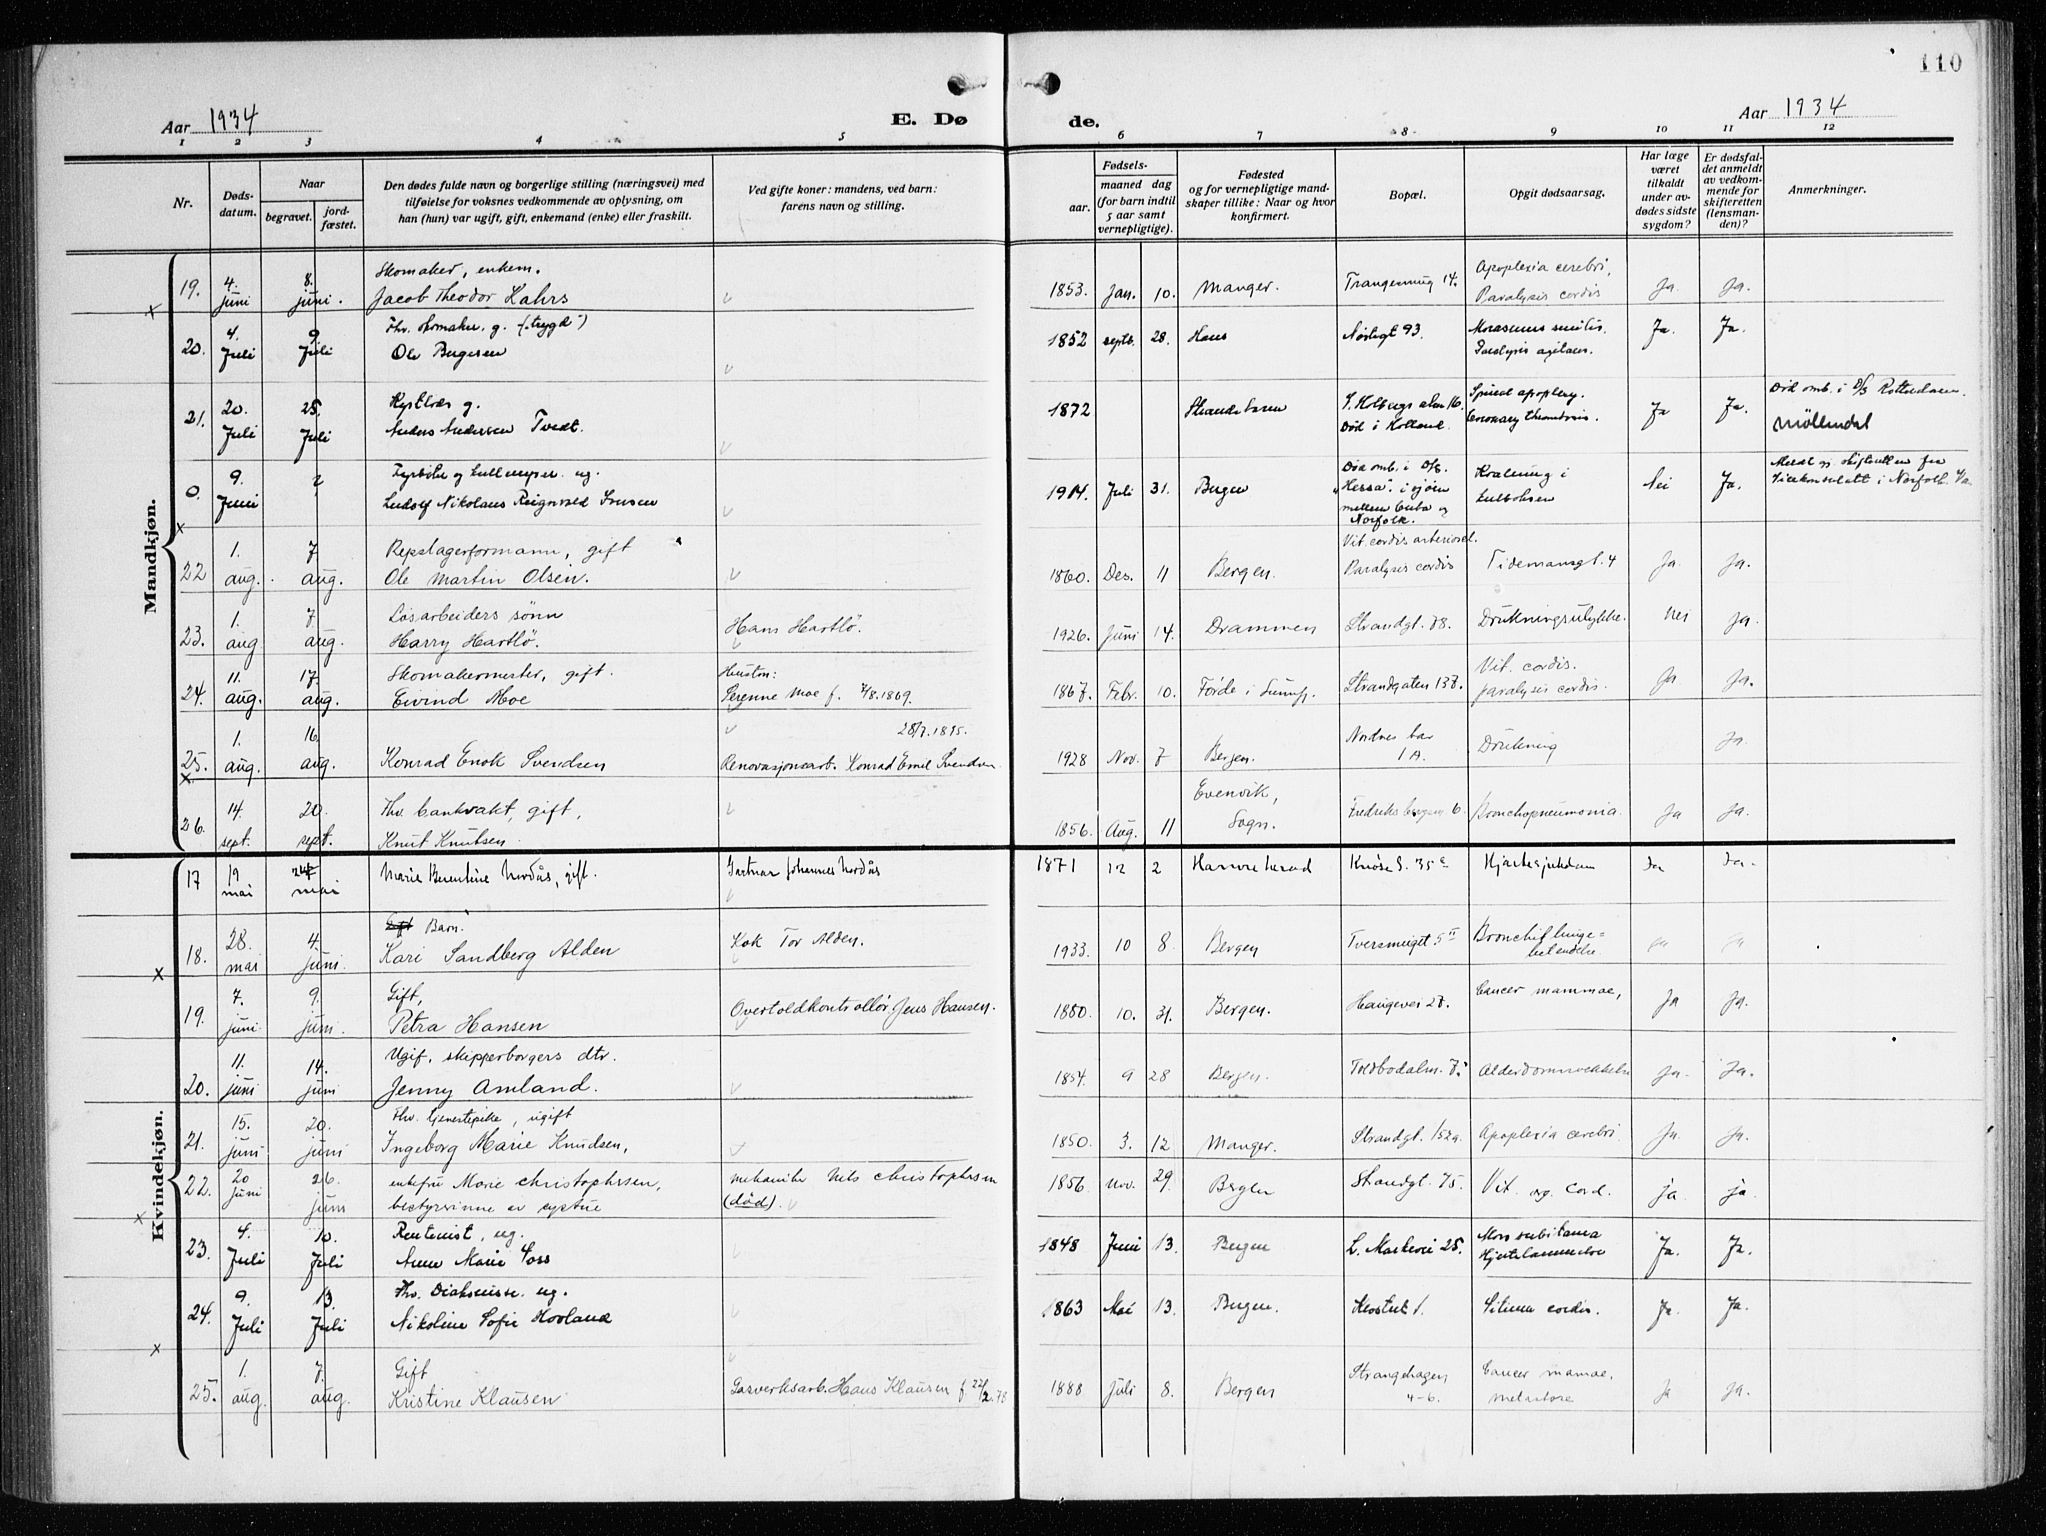 110
Aar 1934
E. Dø
de.
Aar 1934
1 2 3 4 5 6 7 8 9 10 11 12
Nr.
Døds-
datum.
Naar
begravet.
jord-
fæstet.
Den dødes fulde navn og borgerlige stilling (næringsvei) med
tilføielse for voksnes vedkommende av oplysning, om
han (hun) var ugift, gift, enkemand (enke) eller fraskilt.
Ved gifte koner: mandens, ved barn:
farens navn og stilling.
Fødsels-
aar.
maaned dag
(for barn indtil
5 aar samt
vernepligtige).
Fødested
og for vernepligtige mand-
skaper tillike: Naar og hvor
konfirmert.
Bopæl.
Opgit dødsaarsag.
Har læge
været
tilkaldt
under av-
dødes sidste
sygdom?
Er dødsfal-
det anmeldt
av vedkom-
mende for
skifteretten
(lensman-
den)?
Anmerkninger.
Mandkjøn.
4. 8. Skomaker, enkem. Apoplexia cerebri,
19. juni juni. Jacob Theodor Kahrs 1853. Jan. 10. Manger. 14. Paralysis cordis Ja. Ja.
4. 9. Fhv. skomaker. g. ("trygd")
20. Juli Juli Ole Bergesen 1852 septb. 28. Hans Nøstegt 93. Ja. Ja.
20. 25. g. Død omb. i D/S Rotterdam.
21. Juli Juli Anders Andersen Tvedt. 1872 Strandebarm Død i Holland. Coronary thrombosis. Ja Ja. Møllendal
9. ? Fyrbøter og ug. Død omb. i D/S Kvælning i
0. Juni Ludolf Nikolaus 1914 Juli 31. Bergen "Hessa". i sjøen mellem Cuba og Norfolk. Nei Ja.
1. 7 Repslagerformann, gift Vit. cordis arteriosel.
22 aug. aug. Ole Martin Olsen. 1860. Des. 11 Bergen. Paralysis cordis Tidemansgt. 4 Ja. Ja.
1. 7 Løsarbeiders sønn
23. aug aug. Harry Hartlø. Hans Hartlø. 1926. Juni 14. Drammen Strandgt. 78. Drukningsulykke. Nei Ja.
11. 17. Skomakermester, gift. Hustru: Vit. cordis.
24. aug. aug. Eivind Moe Serenne Moe f. 7/8.1869. 1867. Febr. 10. Førde i Strandgaten 137. paralysis cordis. Ja Ja.
1. 16. 28/7.1895. Nordnes bak
25. aug. aug. Konrad Enok Svendsen Renovasjonsarb. Konrad Emil Svendsen 1928 Nov. 7 Bergen. 1 A. Drukning Ja.
14. 20. Fhv. bankvakt, gift, Evenvik,
26. sept. sept. Knut Knutsen 1856. Aug. 11 Sogn. 6. Bronchopneumonia. Ja Ja.
Kvindekjøn.
17 19 mai 24 mai Marie Berentine Nordås, gift. Gartner Johannes Nordås 1871 12 2 Hamre herad Knøse S. 35 Hjertesykdom Ja Ja.
28. 4. Barn.
18. mai juni. Kari Sandberg Alden Kok Tor Alden. 1933. 10 8. Bergen 5 II Ja Ja
7. 9. Gift,
19. juni juni. Petra Hansen Overtoldkontrollør Jens Hansen. 1880. 10. 31. Bergen. Haugevei 27. Cancer mammae, Ja Ja.
11. 14. Ugif. skipperborgers dtr.
20. juni juni Jenny Amland. 1854. 9 28 Bergen. Toldbodalm. 7. Ja. Ja.
15. 20. Fhv. tjenestepike, ugift
21. juni juni Ingeborg Marie Knudsen, 1850. 3. 12 Manger. Strandgt. 152a. Apoplexia cerebri Ja. Ja.
20 26. enkefru Marie Christophersen, mekaniker Nils Christophersen
22. juni juni bestyrerinne av systue (død). 1856. Nov. 29. Bergen Strandgt. 75. Vit. org. Cord. ja ja.
4. 10. Rentenist, ug. Mors subitanea
23. Juli Juli Anne Marie Soss 1848 Juni 13. Bergen L. Markevei 25. Hjertelammelse Ja. Ja.
9. 13. Fhv. Diakonisse. ug.
24. Juli Juli Nikoline Sofie Hovland 1863 Mai 13. Bergen. Klostret 1. Vitium cordis. Ja. Ja.
1. 7. Gift Strangehagen Cancer mamae,
25. aug. aug. Kristine Klausen Gasverksarb. Hans Klausen f. 22/2.78 1888 Juli 8. Bergen 4-6. metastase Ja Ja.